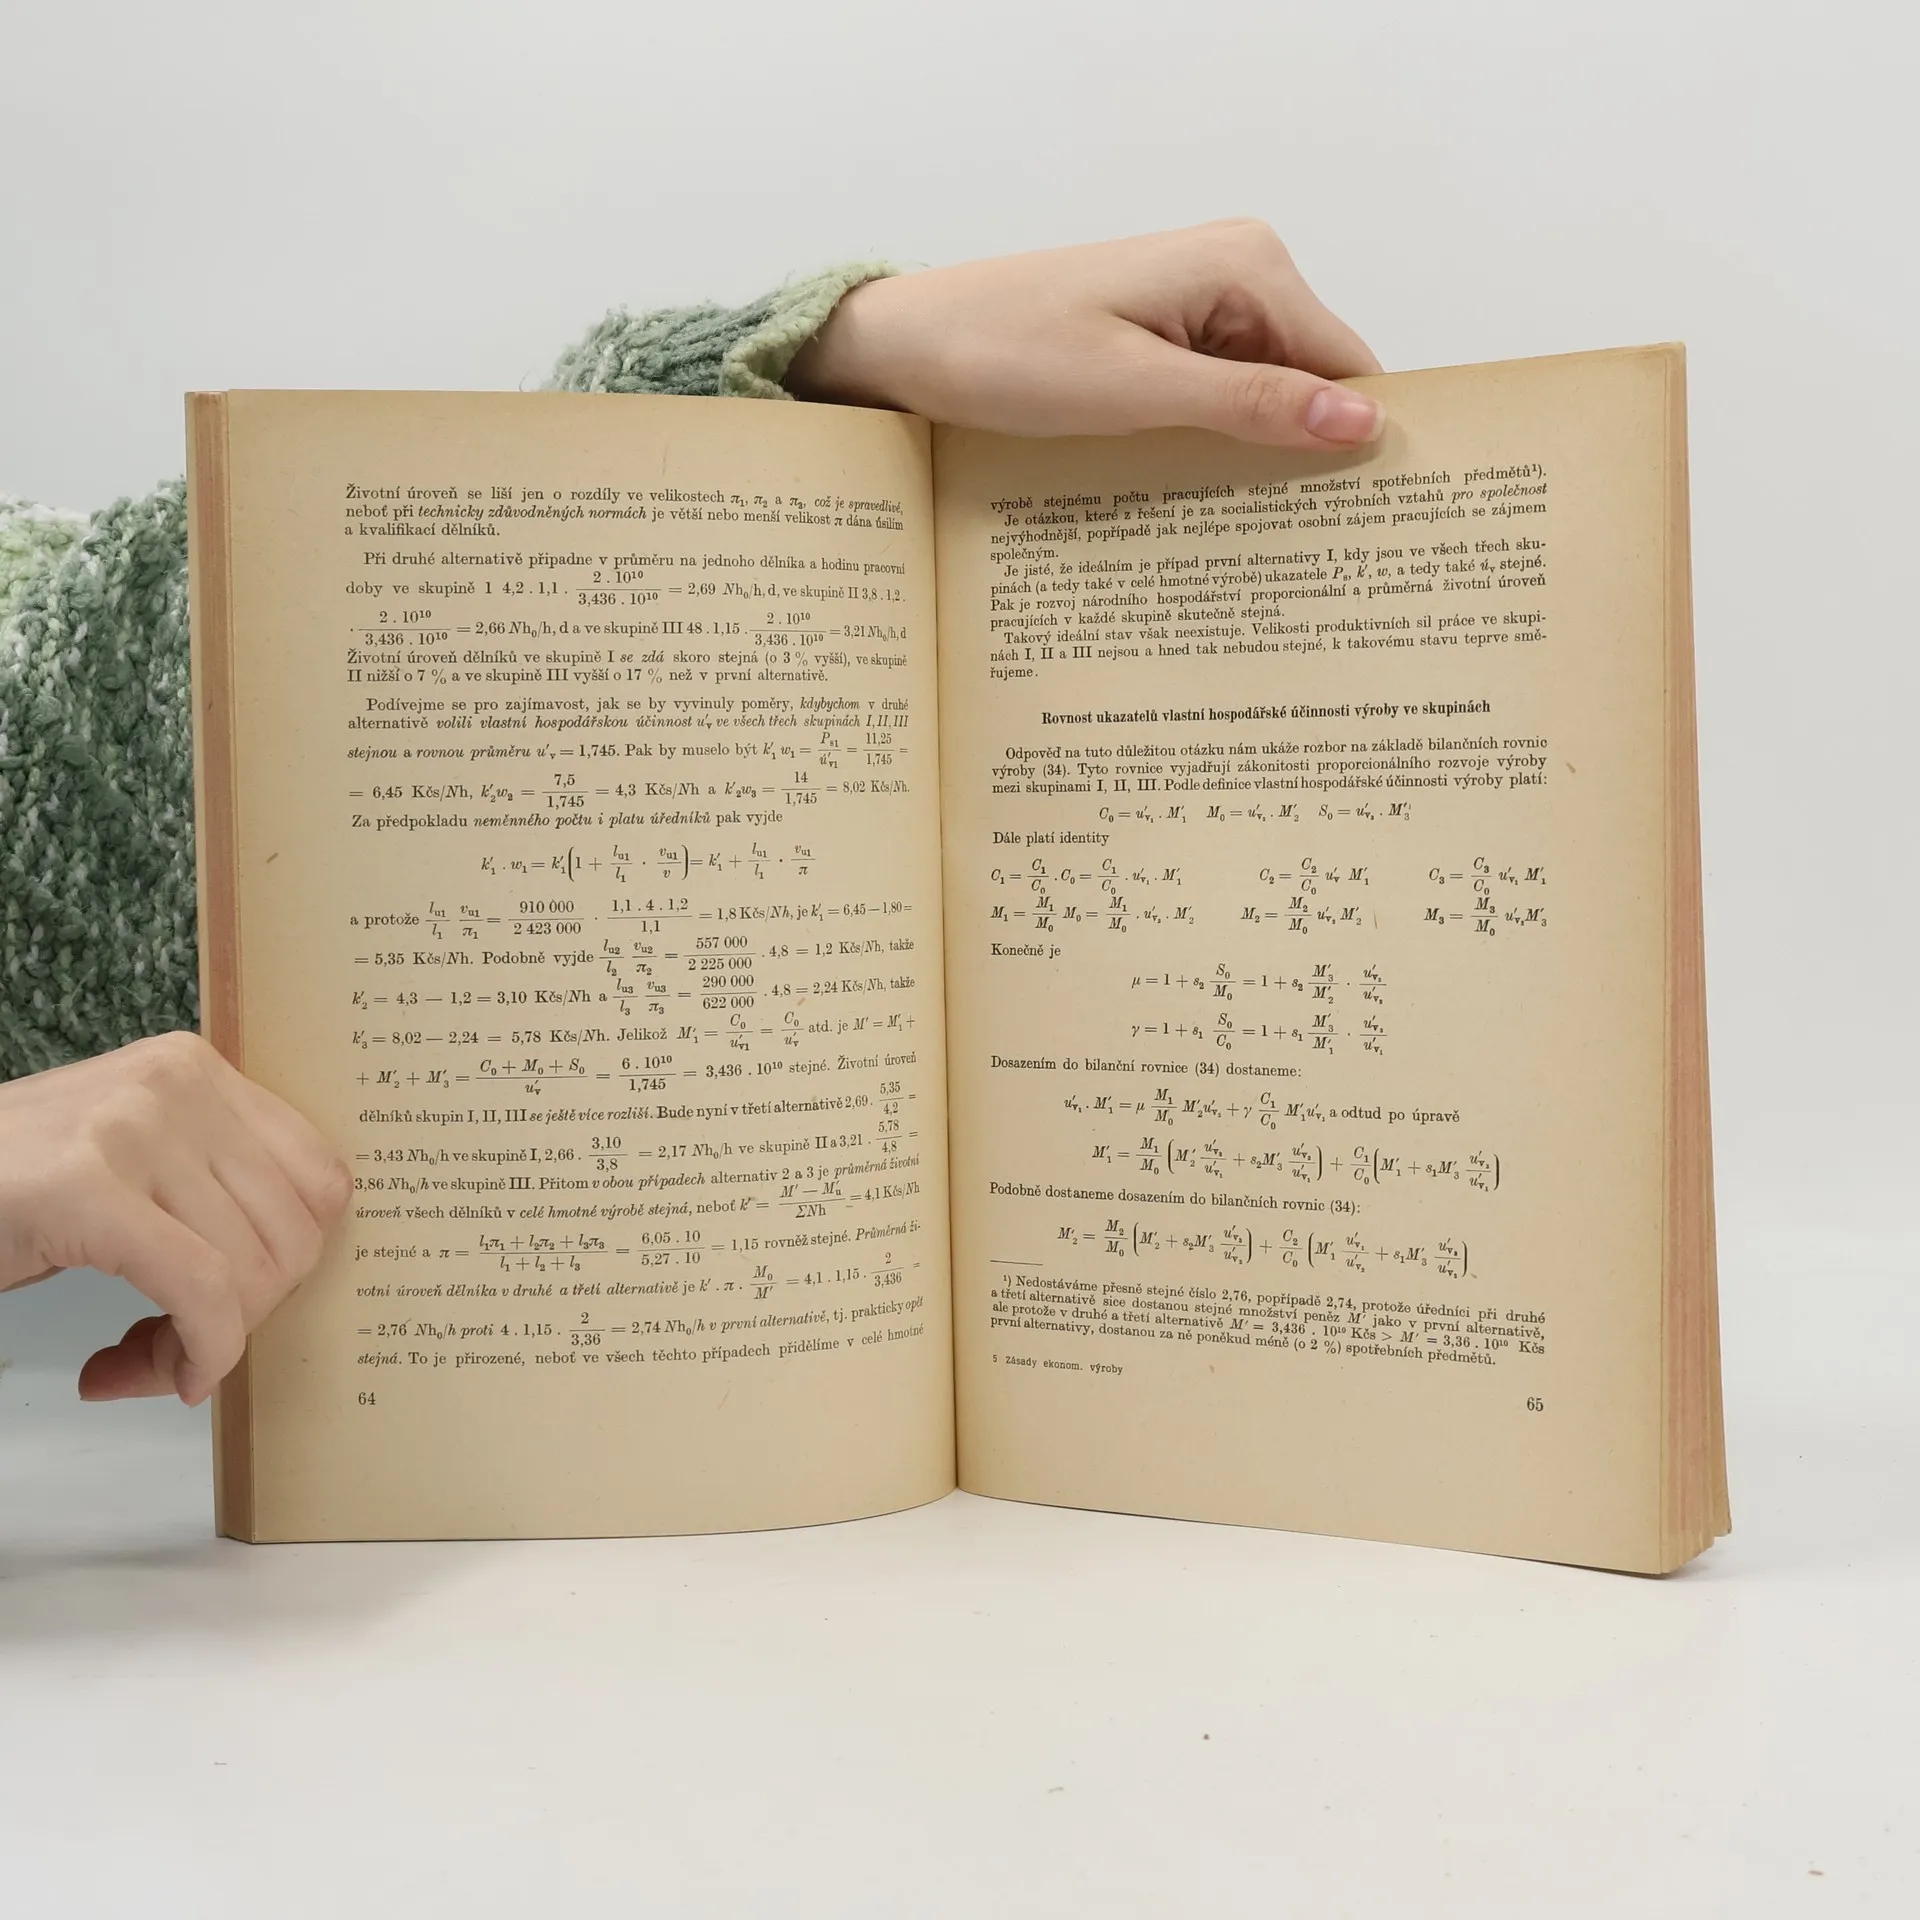 Životní úroveň se liší jen o rozdíly ve velikostech π₁, π₂ a π₃, což je spravedlivé,
neboť při technicky zdůvodněných normách je větší nebo menší velikost π dána úsilím
a kvalifikací dělníků.
Při druhé alternativě připadne v průměru na jednoho dělníka a hodinu pracovní
doby ve skupině 1 4,2 . 1,1 . 2 . 10¹⁰ / 3,436 . 10¹⁰ = 2,69 Nh₀/h, d, ve skupině II 3,8 . 1,2 .
. 2 . 10¹⁰ / 3,436 . 10¹⁰ = 2,66 Nh₀/h, d a ve skupině III 48 . 1,15 . 2 . 10¹⁰ / 3,436 . 10¹⁰ = 3,21 Nh₀/h, d
Životní úroveň dělníků ve skupině I se zdá skoro stejná (o 3 % vyšší), ve skupině
II nižší o 7 % a ve skupině III vyšší o 17 % než v první alternativě.
Podívejme se pro zajímavost, jak se by vyvinuly poměry, kdybychom v druhé
alternativě volili vlastní hospodářskou účinnost u′ᵥ ve všech třech skupinách I, II, III
stejnou a rovnou průměru u′ᵥ = 1,745. Pak by muselo být k′₁ w₁ = Pₛ₁ / u′ᵥ₁ = 11,25 / 1,745 =
= 6,45 Kčs/Nh, k′₂w₂ = 7,5 / 1,745 = 4,3 Kčs/Nh a k′₂w₃ = 14 / 1,745 = 8,02 Kčs/Nh.
Za předpokladu neměnného počtu i platu úředníků pak vyjde
k′₁ . w₁ = k′₁(1 + lᵤ₁ / l₁ . vᵤ₁ / v) = k′₁ + lᵤ₁ / l₁ . vᵤ₁ / π
a protože lᵤ₁ / l₁ vᵤ₁ / π₁ = 910 000 / 2 423 000 . 1,1 . 4 . 1,2 / 1,1 = 1,8 Kčs/Nh, je k′₁ = 6,45 — 1,80 =
= 5,35 Kčs/Nh. Podobně vyjde lᵤ₂ / l₂ vᵤ₂ / π₂ = 557 000 / 2 225 000 . 4,8 = 1,2 Kčs/Nh, takže
k′₂ = 4,3 — 1,2 = 3,10 Kčs/Nh a lᵤ₃ / l₃ vᵤ₃ / π₃ = 290 000 / 622 000 . 4,8 = 2,24 Kčs/Nh, takže
k′₃ = 8,02 — 2,24 = 5,78 Kčs/Nh. Jelikož M′₁ = C₀ / u′ᵥ₁ = C₀ / u′ᵥ atd. je M′ = M′₁ +
+ M′₂ + M′₃ = C₀ + M₀ + S₀ / u′ᵥ = 6 . 10¹⁰ / 1,745 = 3,436 . 10¹⁰ stejné. Životní úroveň
dělníků skupin I, II, III se ještě více rozliší. Bude nyní v třetí alternativě 2,69 . 5,35 / 4,2 =
= 3,43 Nh₀/h ve skupině I, 2,66 . 3,10 / 3,8 = 2,17 Nh₀/h ve skupině II a 3,21 . 5,78 / 4,8 =
3,86 Nh₀/h ve skupině III. Přitom v obou případech alternativ 2 a 3 je průměrná životní
úroveň všech dělníků v celé hmotné výrobě stejná, neboť k′ = M′ — M′ᵤ / ΣNh = 4,1 Kčs/Nh
je stejné a π = l₁π₁ + l₂π₂ + l₃π₃ / l₁ + l₂ + l₃ = 6,05 . 10 / 5,27 . 10 = 1,15 rovněž stejné. Průměrná ži-
votní úroveň dělníka v druhé a třetí alternativě je k′ . π . M₀ / M′ = 4,1 . 1,15 . 2 / 3,436 =
= 2,76 Nh₀/h proti 4 . 1,15 . 2 / 3,36 = 2,74 Nh₀/h v první alternativě, tj. prakticky opět
stejná. To je přirozené, neboť ve všech těchto případech přidělíme v celé hmotné
64
výrobě stejnému počtu pracujících stejné množství spotřebních předmětů¹).
Je otázkou, které z řešení je za socialistických výrobních vztahů pro společnost
nejvýhodnější, popřípadě jak nejlépe spojovat osobní zájem pracujících se zájmem
společným.
Je jisté, že ideálním je případ první alternativy I, kdy jsou ve všech třech sku-
pinách (a tedy také v celé hmotné výrobě) ukazatele Pₛ, k′, w, a tedy také u′ᵥ stejné.
Pak je rozvoj národního hospodářství proporcionální a průměrná životní úroveň
pracujících v každé skupině skutečně stejná.
Takový ideální stav však neexistuje. Velikosti produktivních sil práce ve skupi-
nách I, II a III nejsou a hned tak nebudou stejné, k takovému stavu teprve smě-
řujeme.
Rovnost ukazatelů vlastní hospodářské účinnosti výroby ve skupinách
Odpověď na tuto důležitou otázku nám ukáže rozbor na základě bilančních rovnic
výroby (34). Tyto rovnice vyjadřují zákonitosti proporcionálního rozvoje výroby
mezi skupinami I, II, III. Podle definice vlastní hospodářské účinnosti výroby platí:
C₀ = u′ᵥ₁ . M′₁ M₀ = u′ᵥ₂ . M′₂ S₀ = u′ᵥ₃ . M′₃
Dále platí identity
C₁ = C₁ / C₀ . C₀ = C₁ / C₀ . u′ᵥ₁ . M′₁ C₂ = C₂ / C₀ u′ᵥ M′₁ C₃ = C₃ / C₀ u′ᵥ₁ M′₁
M₁ = M₁ / M₀ M₀ = M₁ / M₀ . u′ᵥ₂ . M′₂ M₂ = M₂ / M₀ u′ᵥ₂ M′₂ M₃ = M₃ / M₀ u′ᵥ₂M′₃
Konečně je
μ = 1 + s₂ S₀ / M₀ = 1 + s₂ M′₃ / M′₂ . u′ᵥ₃ / u′ᵥ₂
γ = 1 + s₁ S₀ / C₀ = 1 + s₁ M′₃ / M′₁ . u′ᵥ₃ / u′ᵥ₁
Dosazením do bilanční rovnice (34) dostaneme:
u′ᵥ₁ . M′₁ = μ M₁ / M₀ M′₂u′ᵥ₂ + γ C₁ / C₀ M′₁u′ᵥ₁ a odtud po úpravě
M′₁ = M₁ / M₀ (M′₂ u′ᵥ₂ / u′ᵥ₁ + s₂M′₃ u′ᵥ₃ / u′ᵥ₁) + C₁ / C₀ (M′₁ + s₁M′₃ u′ᵥ₃ / u′ᵥ₁)
Podobně dostaneme dosazením do bilančních rovnic (34):
M′₂ = M₂ / M₀ (M′₂ + s₂M′₃ u′ᵥ₃ / u′ᵥ₂) + C₂ / C₀ (M′₁ u′ᵥ₁ / u′ᵥ₂ + s₁M′₃ u′ᵥ₃ / u′ᵥ₂)
¹) Nedostáváme přesně stejné číslo 2,76, popřípadě 2,74, protože úředníci při druhé
a třetí alternativě sice dostanou stejné množství peněz M′ jako v první alternativě,
ale protože v druhé a třetí alternativě M′ = 3,436 . 10¹⁰ Kčs > M′ = 3,36 . 10¹⁰ Kčs
první alternativy, dostanou za ně poněkud méně (o 2 %) spotřebních předmětů.
5 Zásady ekonom. výroby
65